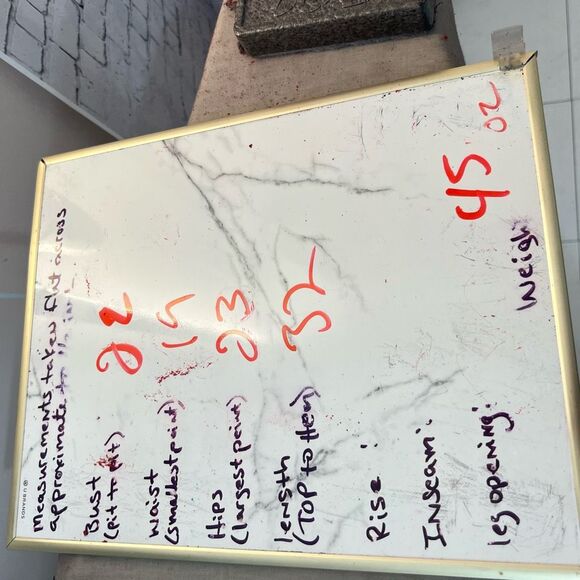 U BRANDS
Measurements taken flat across
approximate to
Bust 22
(pit to pit)
Waist 19
(smallest point)
Hips 23
(largest point)
Length 32
(TOP to Hem)
Rise:
Inseam:
leg opening:
Weigh 45 oz